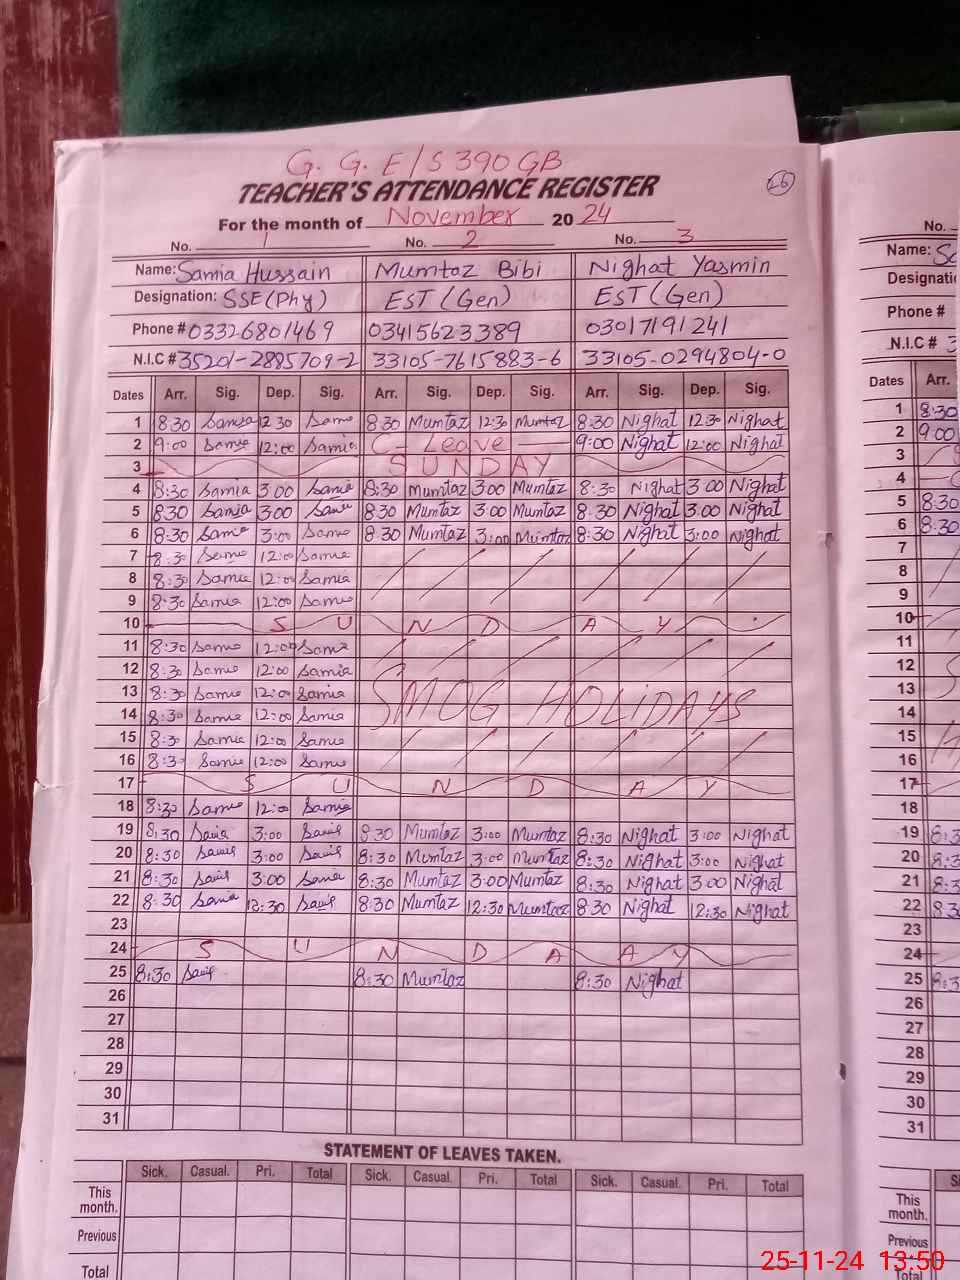 G. G. E/S 390 GB
TEACHER'S ATTENDANCE REGISTER
26
For the month of November 2024
No. 1 No. 2 No. 3
Name: Samia Hussain Mumtaz Bibi Nighat Yasmin
Designation: SSE (Phy) EST (Gen) EST (Gen)
Phone # 03326801469 03415623389 03017191241
N.I.C # 35201-2885709-2 33105-7615883-6 33105-0294804-0
Dates Arr. Sig. Dep. Sig. Arr. Sig. Dep. Sig. Arr. Sig. Dep. Sig.
1 8:30 Samia 12:30 Samia 8:30 Mumtaz 12:30 Mumtaz 8:30 Nighat 12:30 Nighat
2 9:00 Samia 12:00 Samia C- Leave 9:00 Nighat 12:00 Nighat
3 SUNDAY
4 8:30 Samia 3:00 Samia 8:30 Mumtaz 3:00 Mumtaz 8:30 Nighat 3:00 Nighat
5 8:30 Samia 3:00 Samia 8:30 Mumtaz 3:00 Mumtaz 8:30 Nighat 3:00 Nighat
6 8:30 Samia 3:00 Samia 8:30 Mumtaz 3:00 Mumtaz 8:30 Nighat 3:00 Nighat
7 8:30 Samia 12:00 Samia
8 8:30 Samia 12:00 Samia
9 8:30 Samia 12:00 Samia
10 SUNDAY
11 8:30 Samia 12:00 Samia
12 8:30 Samia 12:00 Samia
13 8:30 Samia 12:00 Samia SMOG HOLIDAYS
14 8:30 Samia 12:00 Samia
15 8:30 Samia 12:00 Samia
16 8:30 Samia 12:00 Samia
17 SUNDAY
18 8:30 Samia 12:00 Samia
19 8:30 Samia 3:00 Samia 8:30 Mumtaz 3:00 Mumtaz 8:30 Nighat 3:00 Nighat
20 8:30 Samia 3:00 Samia 8:30 Mumtaz 3:00 Mumtaz 8:30 Nighat 3:00 Nighat
21 8:30 Samia 3:00 Samia 8:30 Mumtaz 3:00 Mumtaz 8:30 Nighat 3:00 Nighat
22 8:30 Samia 12:30 Samia 8:30 Mumtaz 12:30 Mumtaz 8:30 Nighat 12:30 Nighat
23
24 SUNDAAY
25 8:30 Samia 8:30 Mumtaz 8:30 Nighat
26
27
28
29
30
31
STATEMENT OF LEAVES TAKEN.
Sick. Casual. Pri. Total Sick. Casual. Pri. Total Sick. Casual. Pri. Total
This month.
Previous
Total
No.
Name:
Designati
Phone #
N.I.C #
Dates Arr.
1 8:30
2 9:00
3
4
5 8:30
6 8:30
7
8
9
10
11
12
13
14
15
16
17
18
19
20
21
22
23
24
25
26
27
28
29
30
31
This month.
Previous
Total
25-11-24 13:50